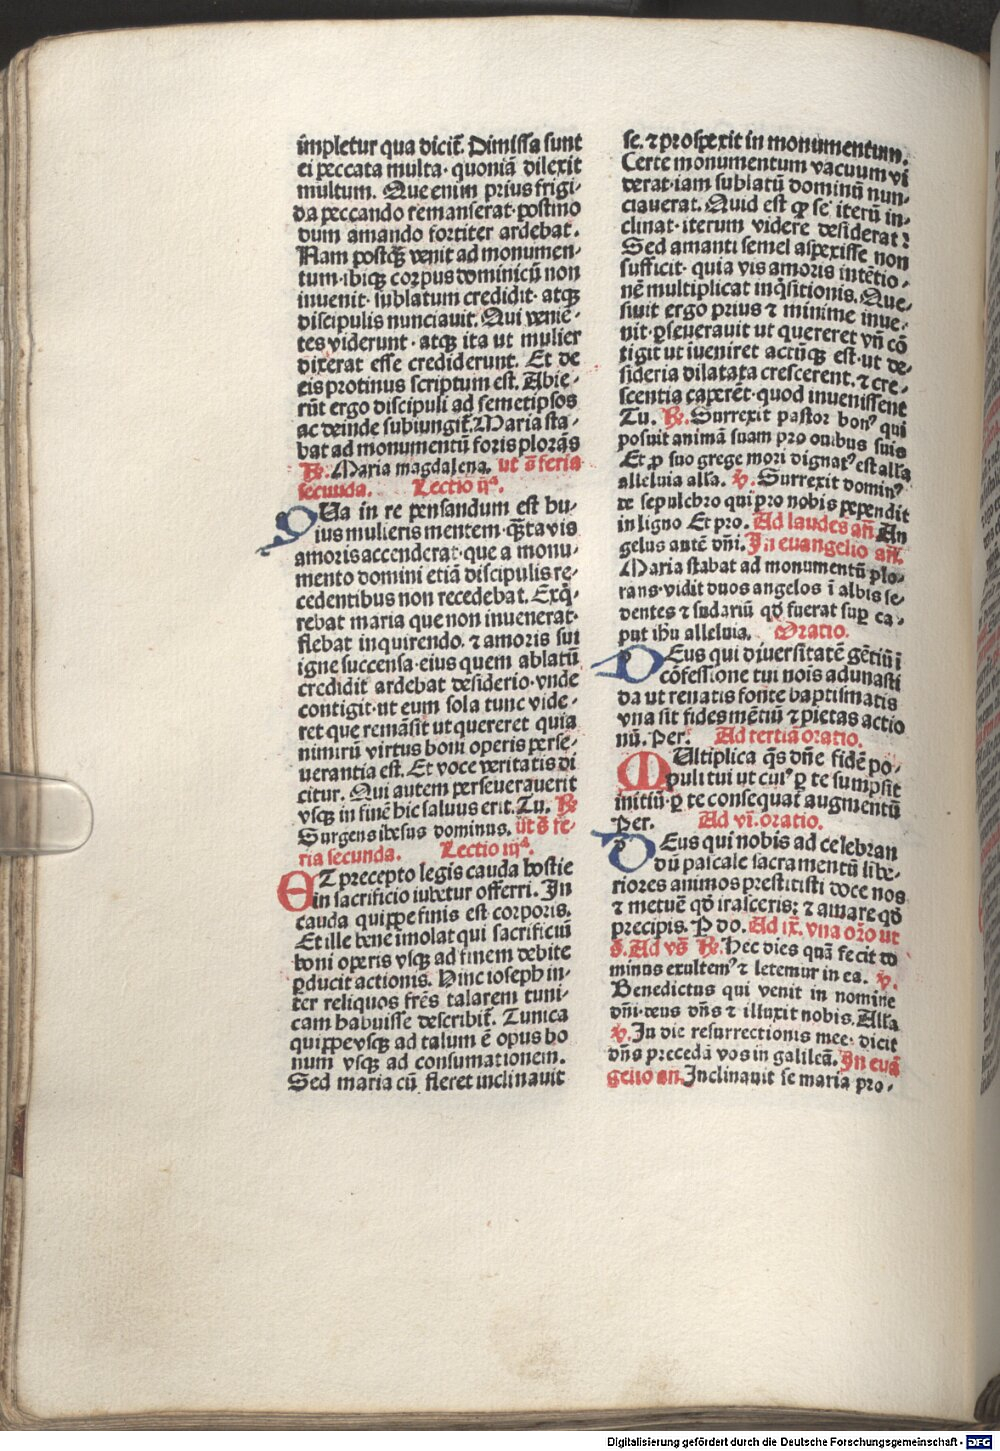 impletur qua dicit̄. Dimissa sunt
ei peccata multa· quoniā dilexit
multum. Que enim prius frigi-
da peccando remanserat· postmo
dum amando fortiter ardebat.
Nam postqȝ venit ad monumen-
tum· ibiqȝ corpus dominicū non
inuenit· sublatum credidit· atqȝ
discipulis nunciauit. Qui venie-
tes viderunt· atqȝ ita ut mulier
dixerat esse crediderunt. Et de
eis protinus scriptum est. Abie-
rūt ergo discipuli ad semetipsos
ac deinde subiungit̄. Maria sta-
bat ad monumentū foris plorās
℟. Maria magdalena. ut ā feria
secunda. Lectio ijª.
QUa in re pensandum est hu-
ius mulieris mentem· q̄ta vis
amoris accenderat· que a monu-
mento domini etiā discipulis re-
cedentibus non recedebat. Exq̄-
rebat maria que non inuenerat·
flebat inquirendo. ⁊ amoris sui
igne succensa· eius quem ablatū
credidit ardebat desiderio· vnde
contigit· ut eum sola tunc vide-
ret que remāsit ut quereret quia
nimirū virtus boni operis perse-
uerantia est. Et voce veritatis di
citur. Qui autem perseuerauerit
vsqȝ in finē hic saluus erit. Tu. ℟
Surgens ihesus dominus. ut s̄ fe-
ria secunda. Lectio iijª.
ET precepto legis cauda hostie
in sacrificio iubetur offerri. In
cauda quippe finis est corporis.
Et ille bene imolat qui sacrificiū
boni operis vsqȝ ad finem debite
ꝑducit actionis. Hinc ioseph in-
ter reliquos frēs talarem tuni-
cam habuisse describit̄. Tunica
quippe vsqȝ ad talum ē opus bo
num vsqȝ ad consumationem.
Sed maria cū fleret inclinauit
se. ⁊ prospexit in monumentum.
Certe monumentum vacuum vi
derat· iam sublatū dominū nun-
ciauerat. Quid est qꝫ se iterū in-
clinat· iterum videre desiderat?
Sed amanti semel aspexisse non
sufficit· quia vis amoris intētio-
nē multiplicat inq̄sitionis. Que-
siuit ergo prius ⁊ minime inue-
nit· ꝑseuerauit ut quereret vn̄ cō
tigit ut iueniret actūqȝ est· ut de-
sideria dilatata crescerent. ⁊ cre-
scentia caperēt· quod inuenissent
Tu. ℟. Surrexit pastor bonꝰ qui
posuit animā suam pro ouibus suis
Et ꝓ suo grege mori dignatꝰ est alľa
alleluia alľa. ℣. Surrexit dominꝰ
de sepulchro qui pro nobis pependit
in ligno Et pro. Ad laudes añ An
gelus autē dn̄i. In euangelio añ.
Maria stabat ad monumentū plo-
rans· vidit duos angelos ī albis se-
dentes ⁊ sudariū qd̄ fuerat sup̄ ca-
put ihū alleluia. Oratio.
DEus qui diuersitatē gētiū ī
cōfessione tui nois adunasti
da ut renatis fonte baptismatis
vna sit fides mētiū ⁊ pietas actio
nū. Per. Ad tertiā oratio.
MUltiplica q̄s dn̄e fidē po-
puli tui ut cuiꝰ ꝑ te sumpsit
initiū· ꝑ te consequat̄ augmentū
Per. Ad vi. oratio.
DEus qui nobis ad celebran
dū pascale sacramentū libe-
riores animos prestitisti doce nos
⁊ metuē qd̄ irasceris: ⁊ amare qd̄
precipis. P do. Ad ix. vna or̄o ut
s̄. Ad vs̄ ℟. Hec dies quā fecit do
minus exultemꝰ ⁊ letemur in ea. ℣.
Benedictus qui venit in nomine
dn̄i· deus dn̄s ⁊ illuxit nobis. Alľa
℣. In die resurrectionis mee· dicit
dn̄s precedā vos in galileā. In euā
gelio an. Inclinauit se maria pro-
Digitalisierung gefördert durch die Deutsche Forschungsgemeinschaft - DFG